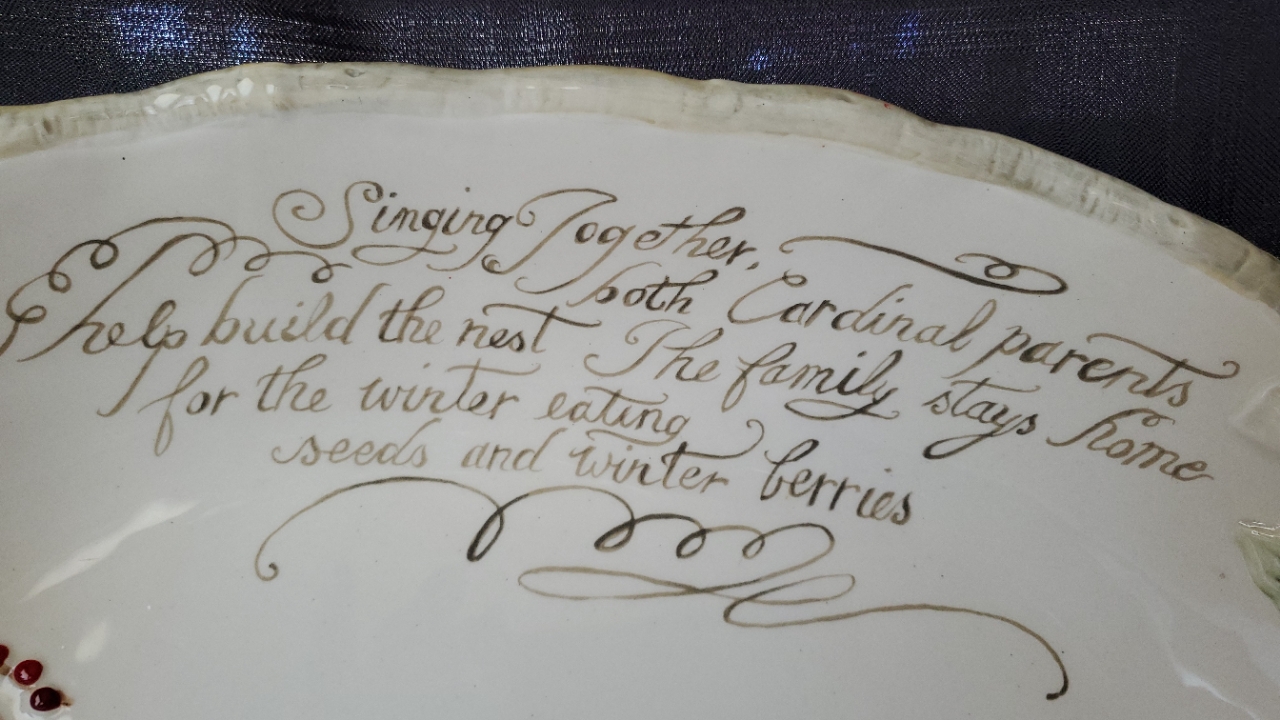 Singing Together,
both Cardinal parents
help build the nest The family stays home
for the winter eating
seeds and winter berries